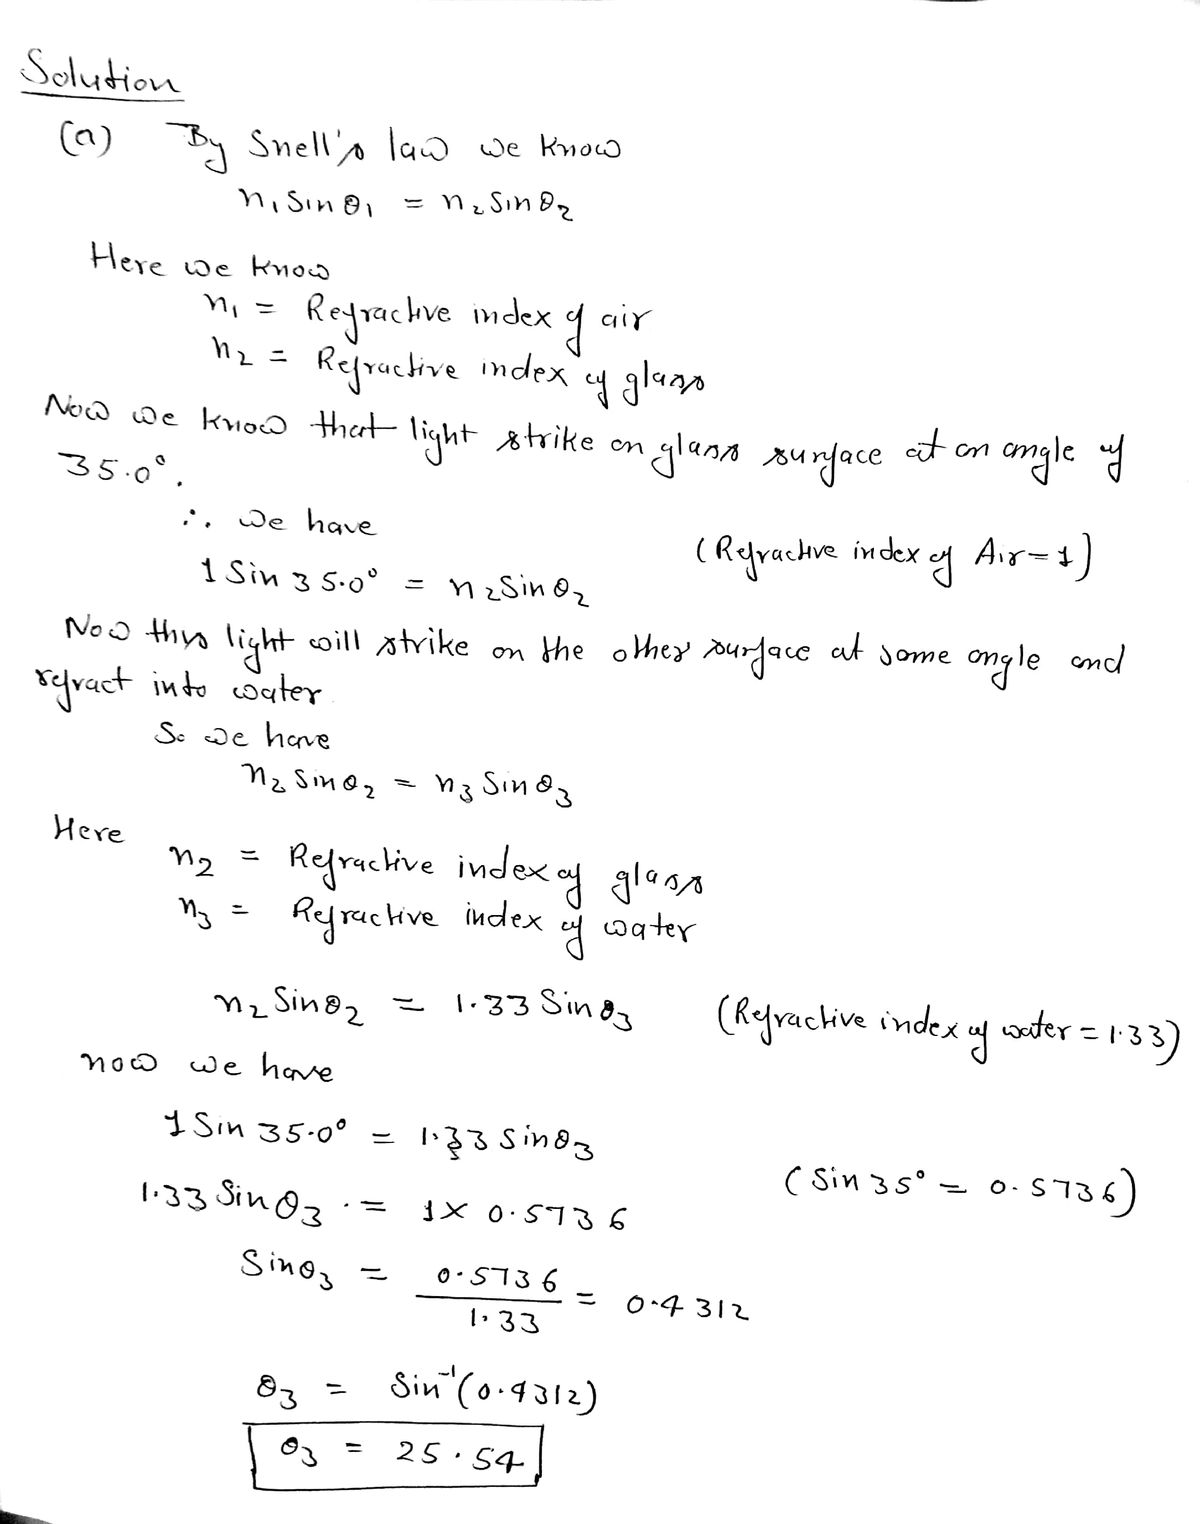 Solution
(a) By Snell's law we know
n₁ Sin θ₁ = n₂ Sin θ₂
Here we know
n₁ = Refractive index of air
n₂ = Refractive index of glass
Now we know that light strike on glass surface at an angle of
35.0°.
∴ we have
1 Sin 35.0° = n₂ Sin θ₂ (Refractive index of Air = 1)
Now this light will strike on the other surface at some angle and
refract into water
So we have
n₂ Sin θ₂ = n₃ Sin θ₃
Here
n₂ = Refractive index of glass
n₃ = Refractive index of water
n₂ Sin θ₂ = 1.33 Sin θ₃ (Refractive index of water = 1.33)
now we have
1 Sin 35.0° = 1.33 sin θ₃
1.33 Sin θ₃ = 1 × 0.5736 (Sin 35° = 0.5736)
Sin θ₃ = 0.5736 / 1.33 = 0.4312
θ₃ = Sin⁻¹(0.4312)
θ₃ = 25.54